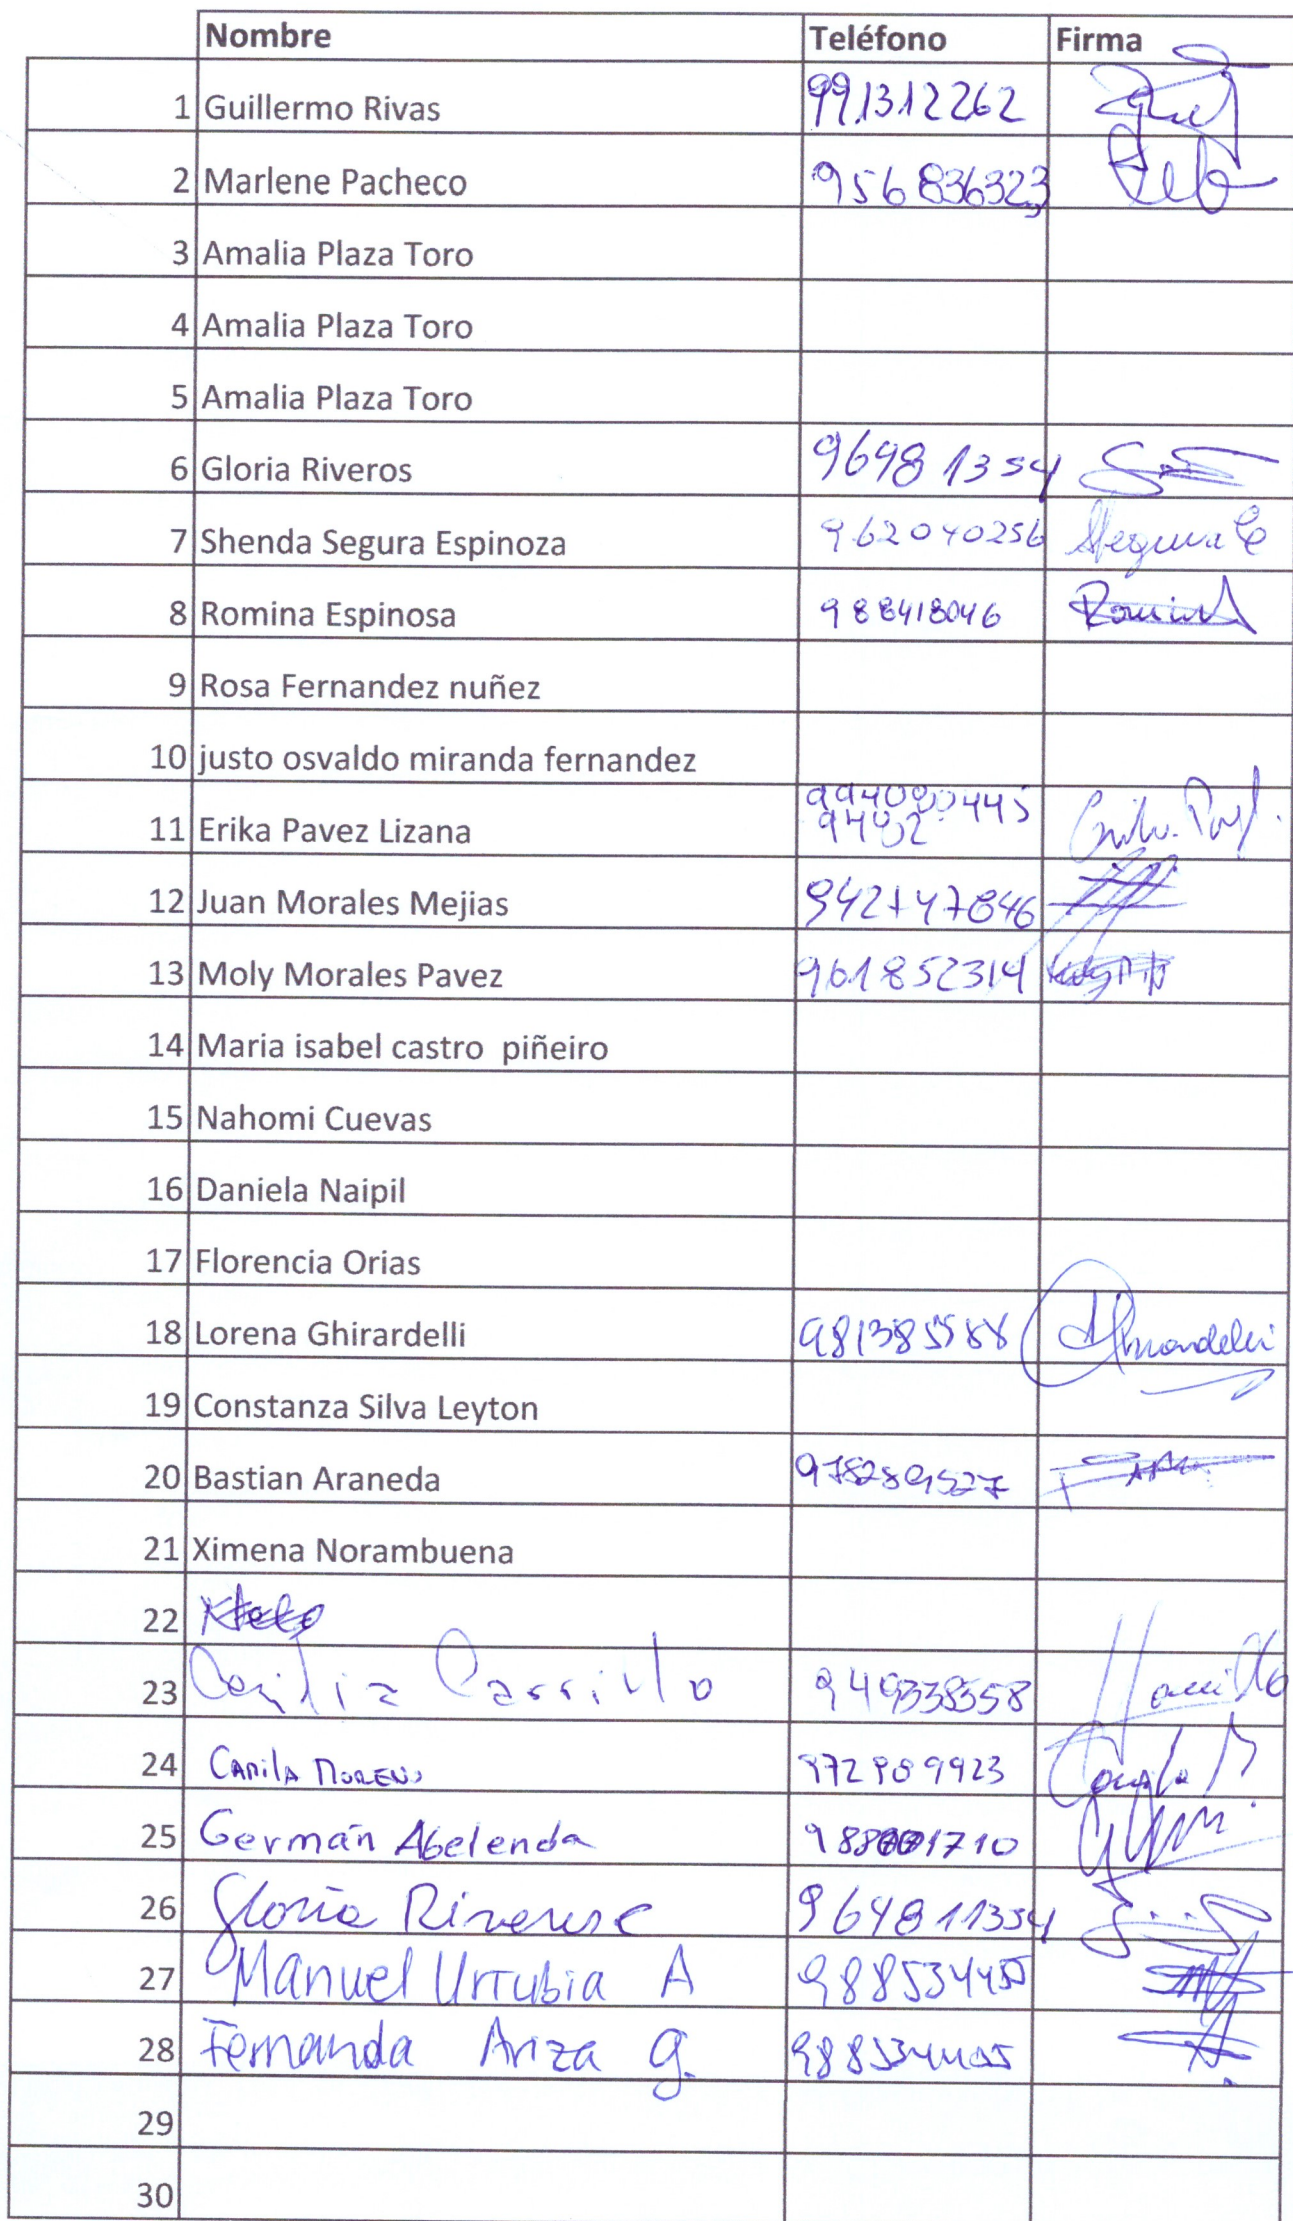 Nombre Teléfono Firma
1 Guillermo Rivas 991312262
2 Marlene Pacheco 956836323
3 Amalia Plaza Toro
4 Amalia Plaza Toro
5 Amalia Plaza Toro
6 Gloria Riveros 96481354
7 Shenda Segura Espinoza 962040256 Segura E
8 Romina Espinosa 988418046 Romina
9 Rosa Fernandez nuñez
10 justo osvaldo miranda fernandez
11 Erika Pavez Lizana
12 Juan Morales Mejias 942747846
13 Moly Morales Pavez 961852314
14 Maria isabel castro piñeiro
15 Nahomi Cuevas
16 Daniela Naipil
17 Florencia Orias
18 Lorena Ghirardelli 981385588
19 Constanza Silva Leyton
20 Bastian Araneda 978289527
21 Ximena Norambuena
22
23 Cecilia Carrillo 949338558
24 Camila Moreno 972989923
25 Germán Abelenda
26 Gloria Riveros C 964811354
27 Manuel Urrubia A
28 Fernanda Ariza G.
29
30